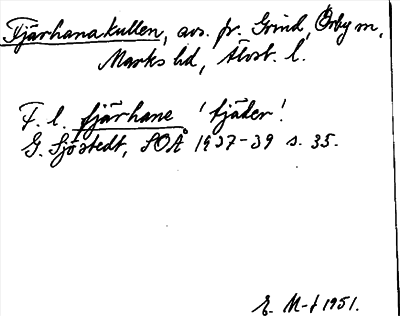 Tjärhanakullen, avs. fr. Grind, Örby sn,
Marks hd, Älvsb. l.
F. l. tjärhane 'tjäder'.
G. Sjöstedt, SOÅ 1937-39 s. 35.
E. M-f 1951.